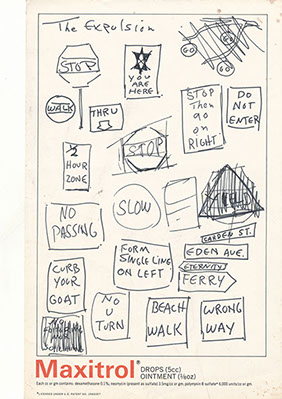 The Expulsion
GO
GO
GO
STOP
YOU
ARE
HERE
WALK
THRU
STOP
Then
go
on
RIGHT
DO
NOT
ENTER
2
HOUR
ZONE
STOP
NO
PASSING
SLOW
FORM
SINGLE LINE
ON LEFT
GARDEN ST.
EDEN AVE.
ETERNITY
FERRY
CURB
YOUR
GOAT
NO
U
TURN
BEACH
WALK
WRONG
WAY
Maxitrol®
DROPS (5cc)
OINTMENT (⅛oz)
Each cc or gm contains: dexamethasone 0.1%, neomycin (present as sulfate) 3.5mg/cc or gm, polymyxin B sulfate* 6,000 units/cc or gm.